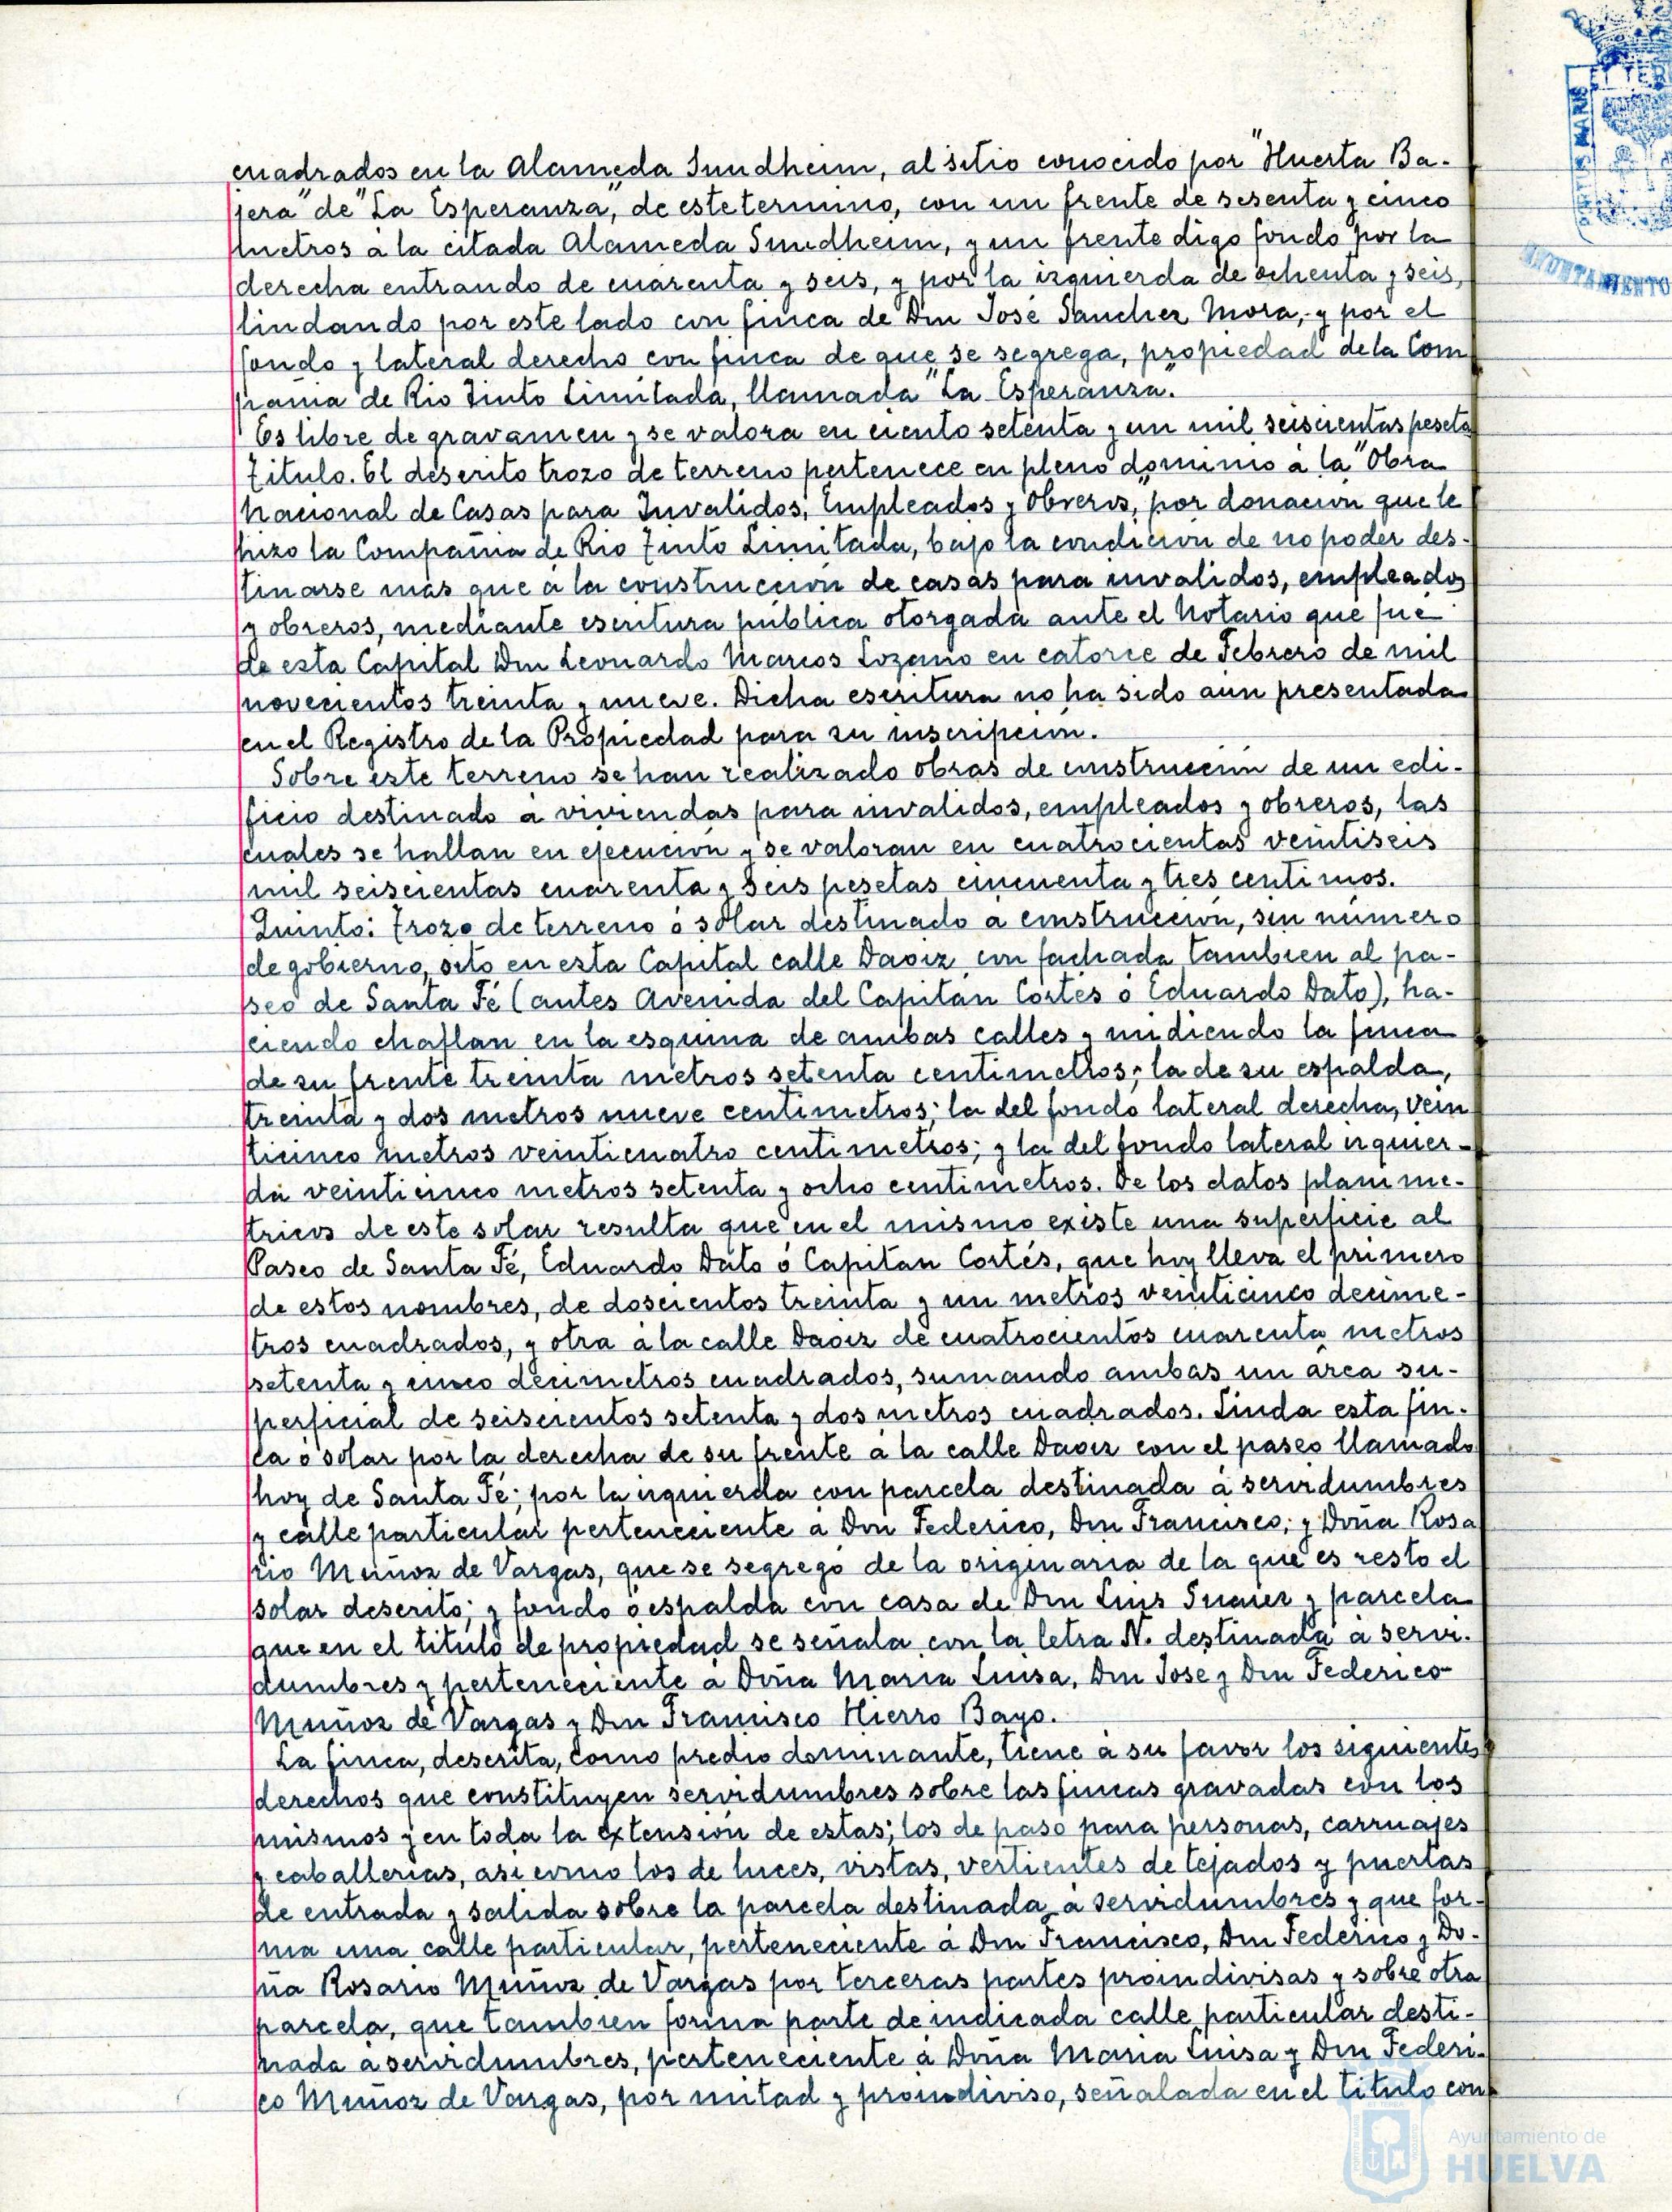 cuadrados en la Alameda Sundheim, al sitio conocido por "Huerta Ba-
jera" de "La Esperanza", de este termino, con un frente de sesenta y cinco
metros á la citada Alameda Sundheim, y un frente digo fondo por la
derecha entrando de cuarenta y seis, y por la izquierda de ochenta y seis,
lindando por este lado con finca de Don José Sanchez Mora, y por el
fondo y lateral derecho con finca de que se segrega, propiedad de la Com
pañia de Rio Tinto Limitada, llamada "La Esperanza".
Es libre de gravamen y se valora en ciento setenta y un mil seiscientas pesetas
Titulo. El descrito trozo de terreno pertenece en pleno dominio á la "Obra
Nacional de Casas para Invalidos, Empleados y Obreros", por donación que le
hizo la Compañia de Rio Tinto Limitada, bajo la condición de no poder des-
tinarse más que á la construcción de casas para invalidos, empleados
y obreros, mediante escritura pública otorgada ante el Notario que fué
de esta Capital Don Leonardo Marcos Lozano en catorce de Febrero de mil
novecientos treinta y nueve. Dicha escritura no ha sido aún presentada
en el Registro de la Propiedad para su inscripción.
Sobre este terreno se han realizado obras de construcción de un edi-
ficio destinado á viviendas para invalidos, empleados y obreros, las
cuales se hallan en ejecución y se valoran en cuatrocientas veintiseis
mil seiscientas cuarenta y seis pesetas cincuenta y tres centimos.
Quinto: Trozo de terreno ó solar destinado á construcción, sin número
de gobierno, sito en esta Capital calle Daoiz, con fachada tambien al pa-
seo de Santa Fé (antes Avenida del Capitán Cortés ó Eduardo Dato), ha-
ciendo chaflan en la esquina de ambas calles y midiendo la finca
de su frente treinta metros setenta centimetros; la de su espalda,
treinta y dos metros nueve centimetros; la del fondo lateral derecha, vein
ticinco metros veinticuatro centimetros; y la del fondo lateral izquier-
da veinticinco metros setenta y ocho centimetros. De los datos planime-
tricos de este solar resulta que en el mismo existe una superficie al
Paseo de Santa Fé, Eduardo Dato ó Capitan Cortés, que hoy lleva el primero
de estos nombres, de doscientos treinta y un metros veinticinco decime-
tros cuadrados, y otra á la calle Daoiz de cuatrocientos cuarenta metros
setenta y cinco decimetros cuadrados, sumando ambas un área su-
perficial de seiscientos setenta y dos metros cuadrados. Linda esta fin-
ca ó solar por la derecha de su frente á la calle Daoiz con el paseo llamado
hoy de Santa Fé; por la izquierda con parcela destinada á servidumbres
y calle particular perteneciente á Don Federico, Don Francisco, y Doña Rosa
rio Muñoz de Vargas, que se segregó de la originaria de la que es resto el
solar descrito; y fondo ó espalda con casa de Don Luis Suarez y parcela
que en el titulo de propiedad se señala con la letra N. destinada á servi-
dumbres y perteneciente á Doña Maria Luisa, Don Jose y Don Federico
Muñoz de Vargas y Don Francisco Hierro Bayo.
La finca, descrita, como predio dominante, tiene á su favor los siguientes
derechos que constituyen servidumbres sobre las fincas gravadas con los
mismos y en toda la extensión de estas; los de paso para personas, carruajes
y caballerias, asi como los de luces, vistas, vertientes de tejados y puertas
de entrada y salida sobre la parcela destinada á servidumbres y que for-
ma una calle particular, perteneciente á Don Francisco, Don Federico y Do-
ña Rosario Muñoz de Vargas por terceras partes proindivisas y sobre otra
parcela, que tambien forma parte de indicada calle particular desti-
nada á servidumbres, perteneciente á Doña Maria Luisa y Don Federi-
co Muñoz de Vargas, por mitad y proindiviso, señalada en el titulo con
AYUNTAMIENTO
Ayuntamiento de
HUELVA